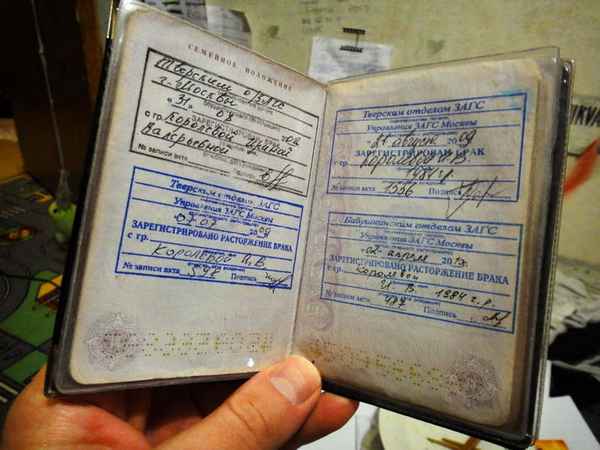 СЕМЕЙНОЕ ПОЛОЖЕНИЕ
Тверским ОЗАГС
г. Москвы
"31" 08
ЗАРЕГИСТРИРОВАН БРАК
с гр. Королевой Ириной
Валерьевной
№ записи акта
Тверским отделом ЗАГС
Управления ЗАГС Москвы
07.07 2009
ЗАРЕГИСТРИРОВАНО РАСТОРЖЕНИЕ БРАКА
с гр.
Королевой И.В.
№ записи акта 392 Подпись
Тверским отделом ЗАГС
Управления ЗАГС Москвы
21 август 2009
ЗАРЕГИСТРИРОВАН БРАК
с гр. Королевой И.В.
1984 г.
№ записи акта 1556 Подпись
Бабушкинским отделом ЗАГС
Управления ЗАГС Москвы
02 апреля 2013
ЗАРЕГИСТРИРОВАНО РАСТОРЖЕНИЕ БРАКА
с гр. Королевой
И. В. 1984 г.р.
№ записи акта 497 Подпись